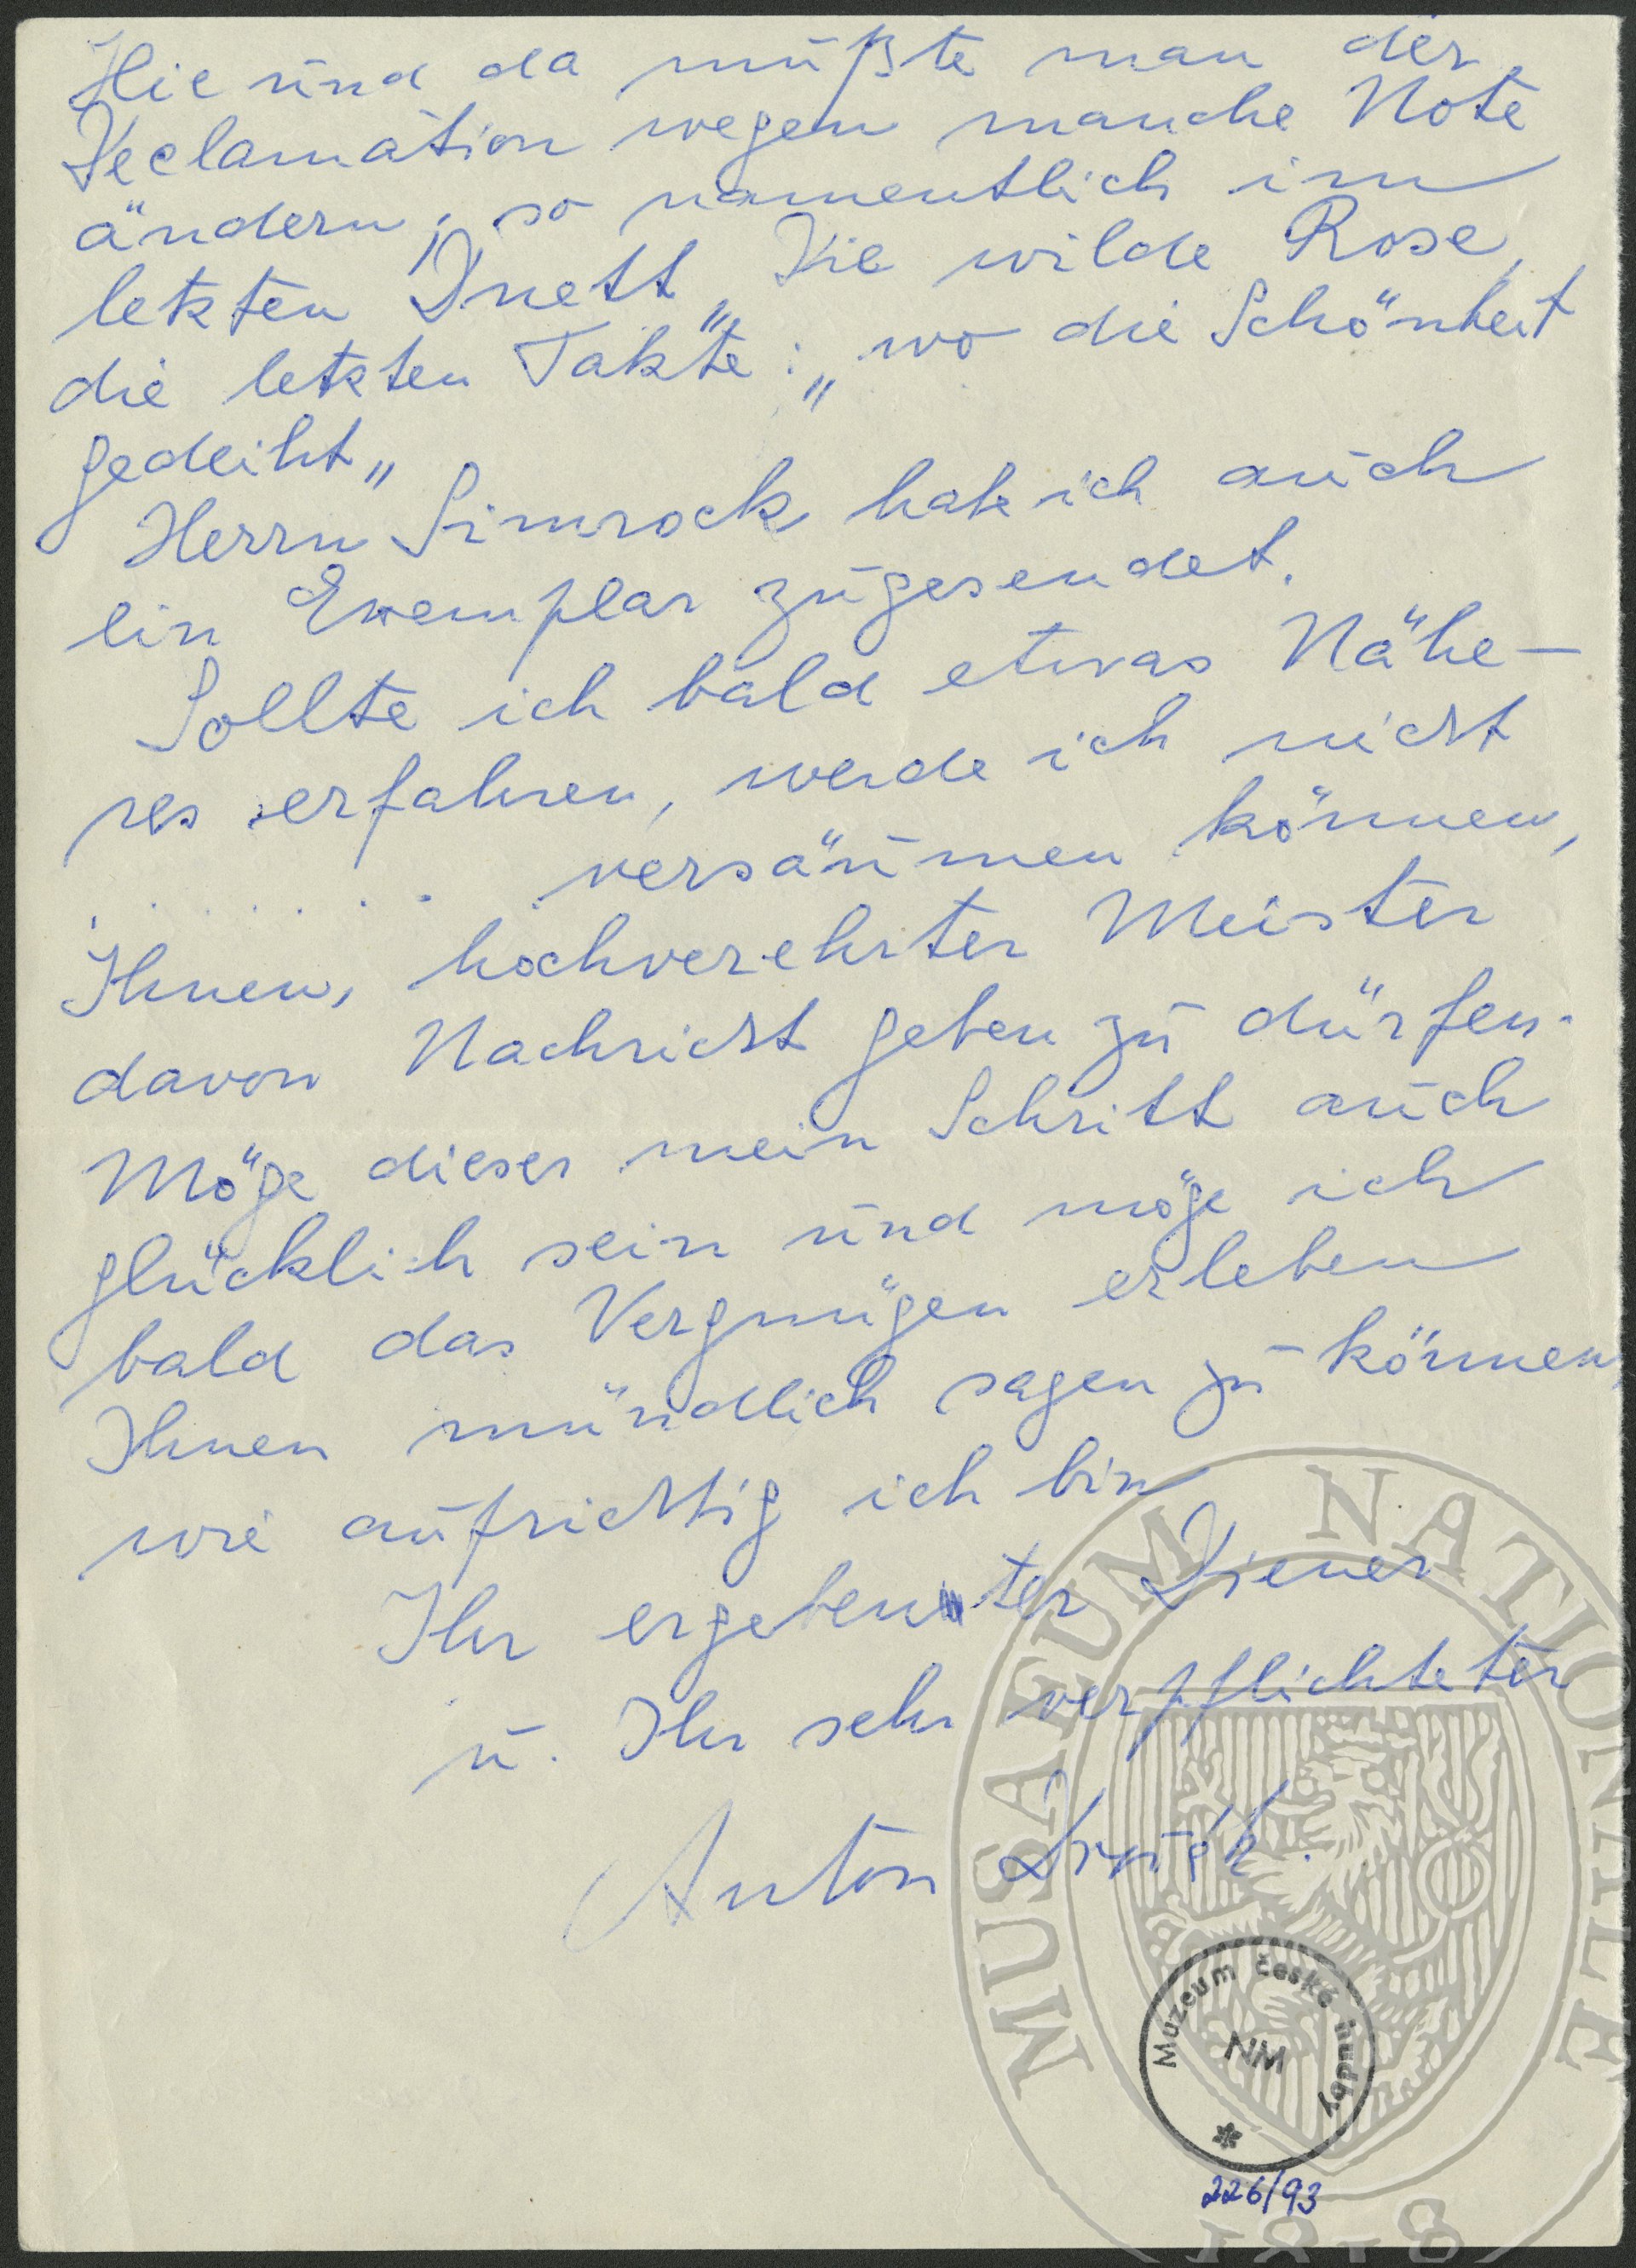 Hie und da müßte man der
Declamation wegen manche Note
ändern; so namentlich im
letzten Duett „Die wilde Rose„
die letzten Takte: „wo die Schönheit
gedeiht„
Herrn Simrock habe ich auch
ein Exemplar zugesendet.
Sollte ich bald etwas Nähe-
res erfahren, werde ich nicht
. . . . . . . . versäumen können,
Ihnen, hochverehrter Meister
davon Nachricht geben zu dürfen.
Möge dieser mein Schritt auch
glücklich sein und möge ich
bald das Vergnügen erleben
Ihnen mündlich sagen zu können,
wie aufrichtig ich bin
Ihr ergebenster Diener
u. Ihr sehr verpflichteter
Anton Dvořák.
MUSAEUM NATIONALE
1818
Muzeum české hudby
NM
226/93